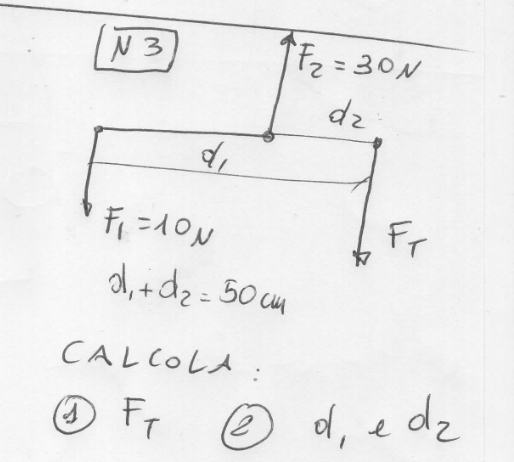 N 3
F₂ = 30 N
d₂
d₁
F₁ = 10 N
F_T
d₁ + d₂ = 50 cm
CALCOLA :
① F_T ② d₁ e d₂